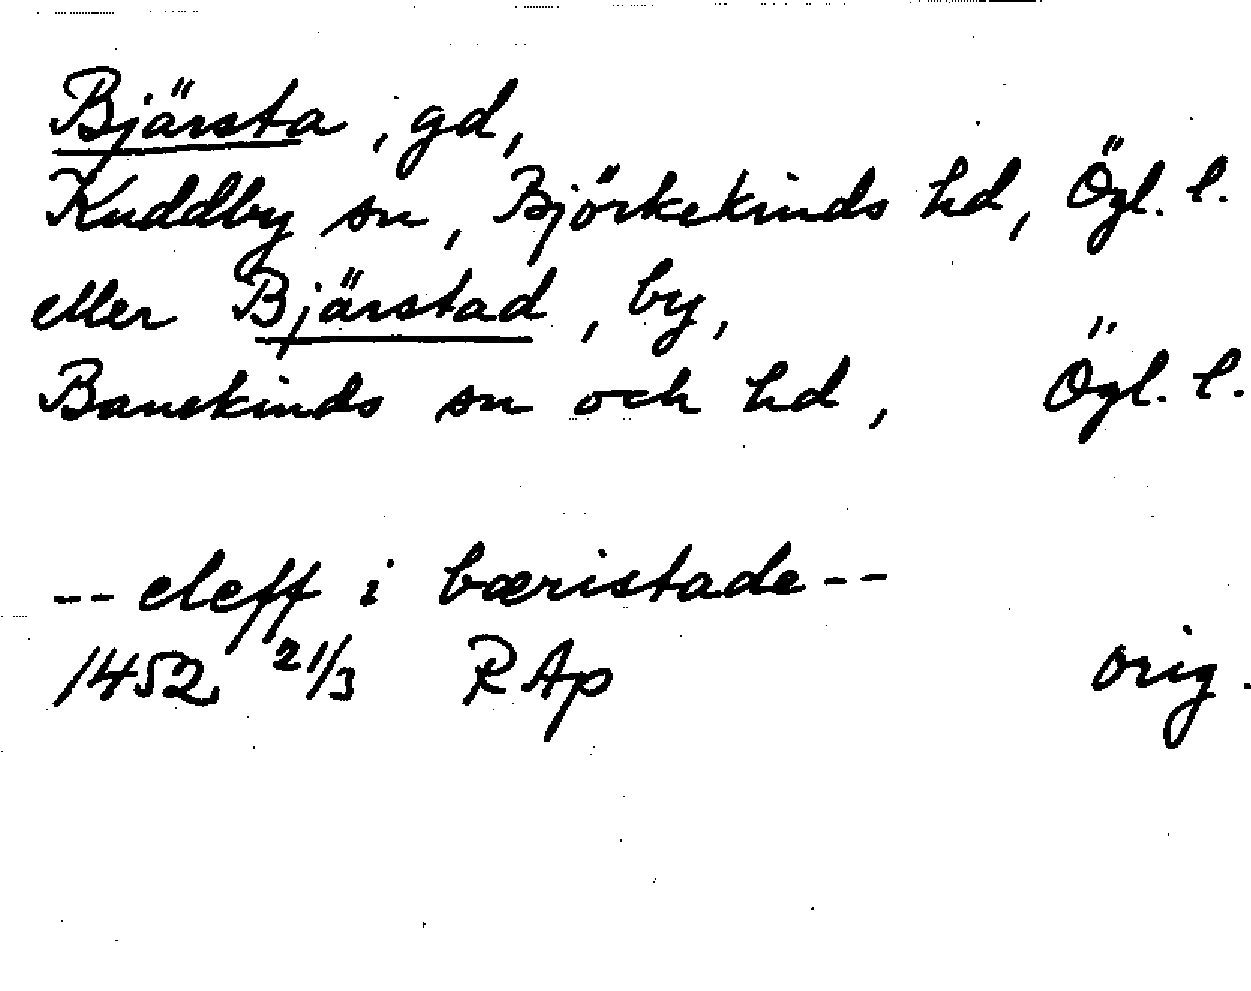 Bjärsta, gd,
Kuddby sn, Björkekinds hd, Ögl. l.
eller Bjärstad, by,
Bankekinds sn och hd, Ögl. l.
-- eleff i bæristade --
1452 21/3 RAp orig.